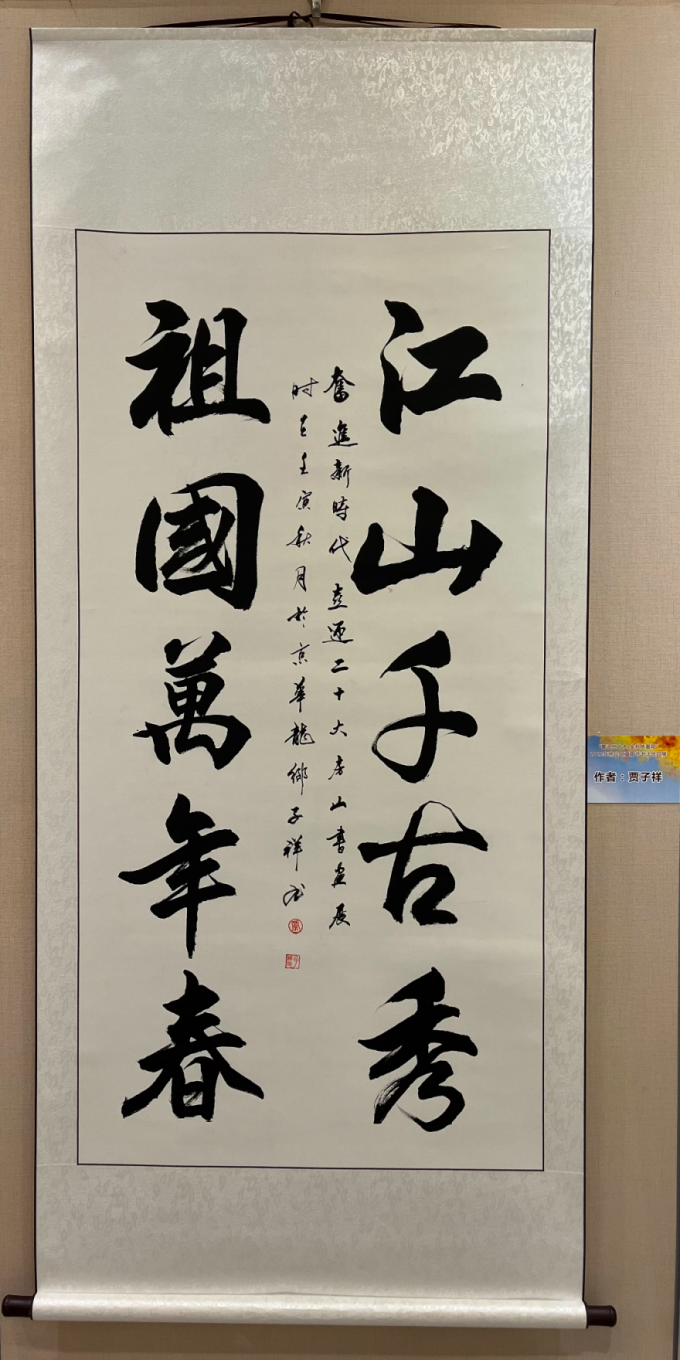 江山千古秀
奮進新時代喜迎二十大房山書畫展
时在壬寅秋月於京華龍鄉子祥书
祖國萬年春
作者：贾子祥